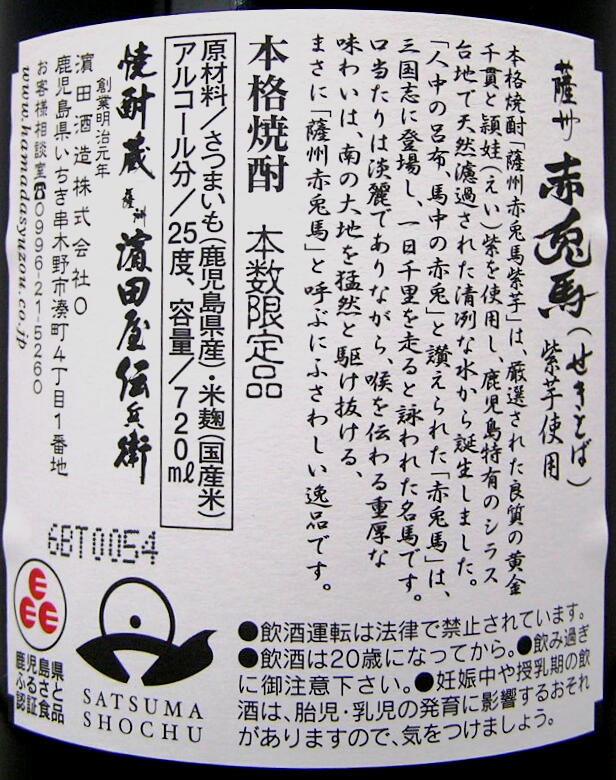 薩州 赤兎馬(せきとば)
紫芋使用
本格焼酎「薩州赤兎馬紫芋」は、厳選された良質の黄金
千貫と頴娃(えい)紫を使用し、鹿児島特有のシラス
台地で天然濾過された清冽な水から誕生しました。
「人中の呂布、馬中の赤兎」と讃えられた「赤兎馬」は、
三国志に登場し、一日千里を走ると詠われた名馬です。
口当たりは淡麗でありながら、喉を伝わる重厚な
味わいは、南の大地を猛然と駆け抜ける、
まさに「薩州赤兎馬」と呼ぶにふさわしい逸品です。
本格焼酎 本数限定品
原材料/さつまいも(鹿児島県産)・米麹(国産米)
アルコール分/25度、容量/720mℓ
焼酎蔵 薩州 濵田屋伝兵衛
創業明治元年
濵田酒造株式会社O
鹿児島県いちき串木野市湊町4丁目1番地
お客様相談室☎0996-21-5260
www.hamadasyuzou.co.jp
6BT0054
鹿児島県
ふるさと
認証食品
SATSUMA
SHOCHU
●飲酒運転は法律で禁止されています。
●飲酒は20歳になってから。●飲み過ぎ
に御注意下さい。●妊娠中や授乳期の飲
酒は、胎児・乳児の発育に影響するおそれ
がありますので、気をつけましょう。